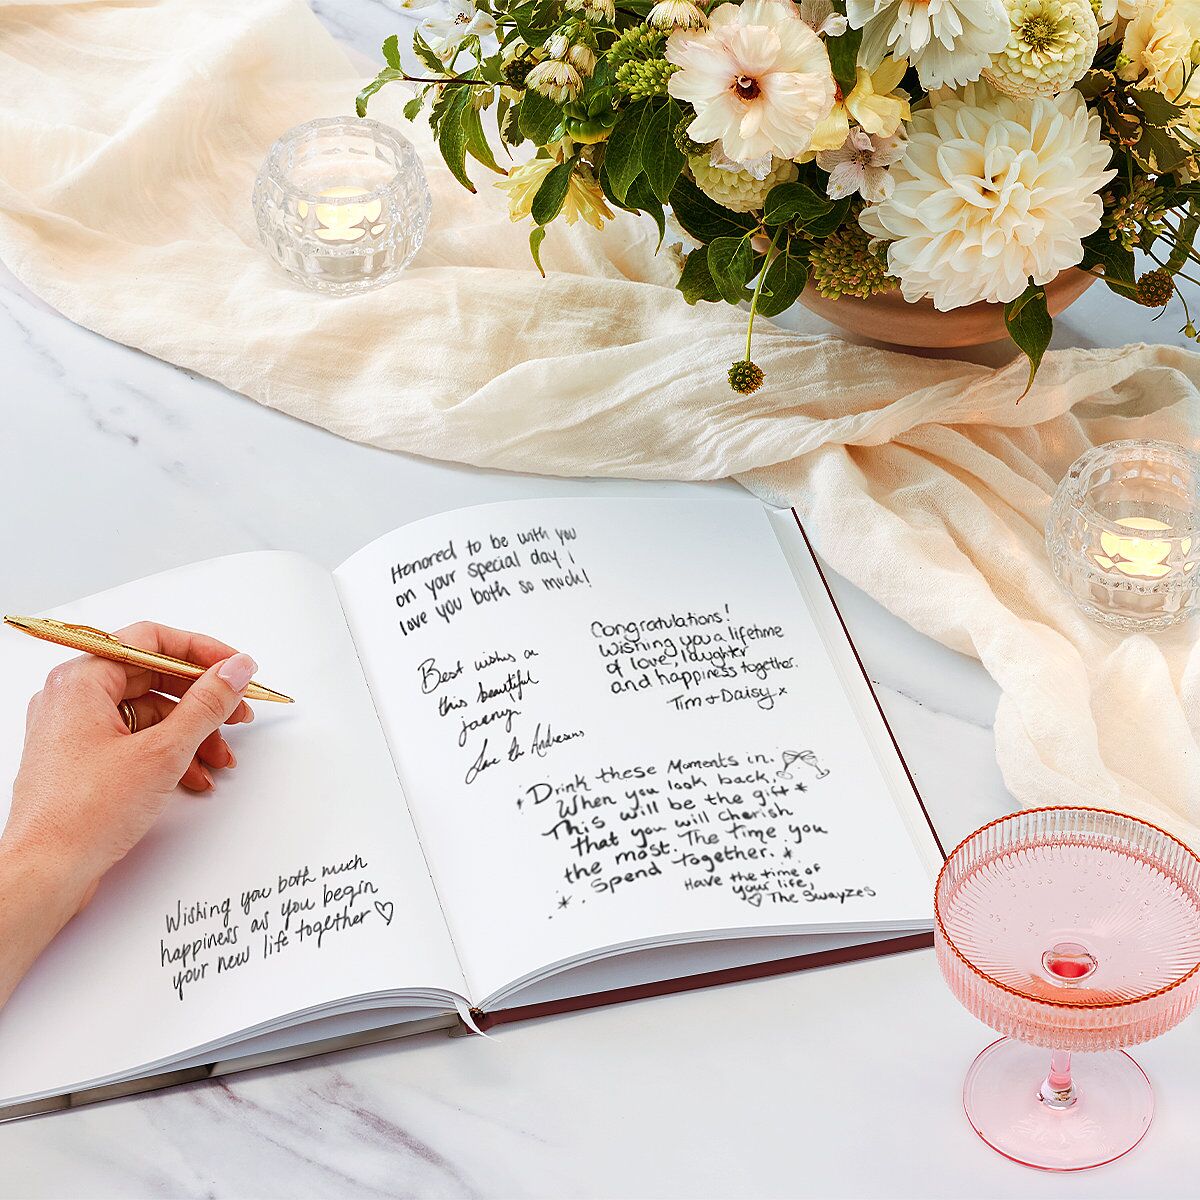 Wishing you both much
happiness as you begin
your new life together
Honored to be with you
on your special day I
love you both so much!
Congratulations!
Wishing you a lifetime
of love, laughter
and happiness together.
Tim + Daisy x
Best wishes on
this beautiful
journey
Love The
Drink these Moments in.
When you look back,
This will be the gift
that you will cherish
the most. The time you
spend together.
Have the time of
your life,
The Swayzes